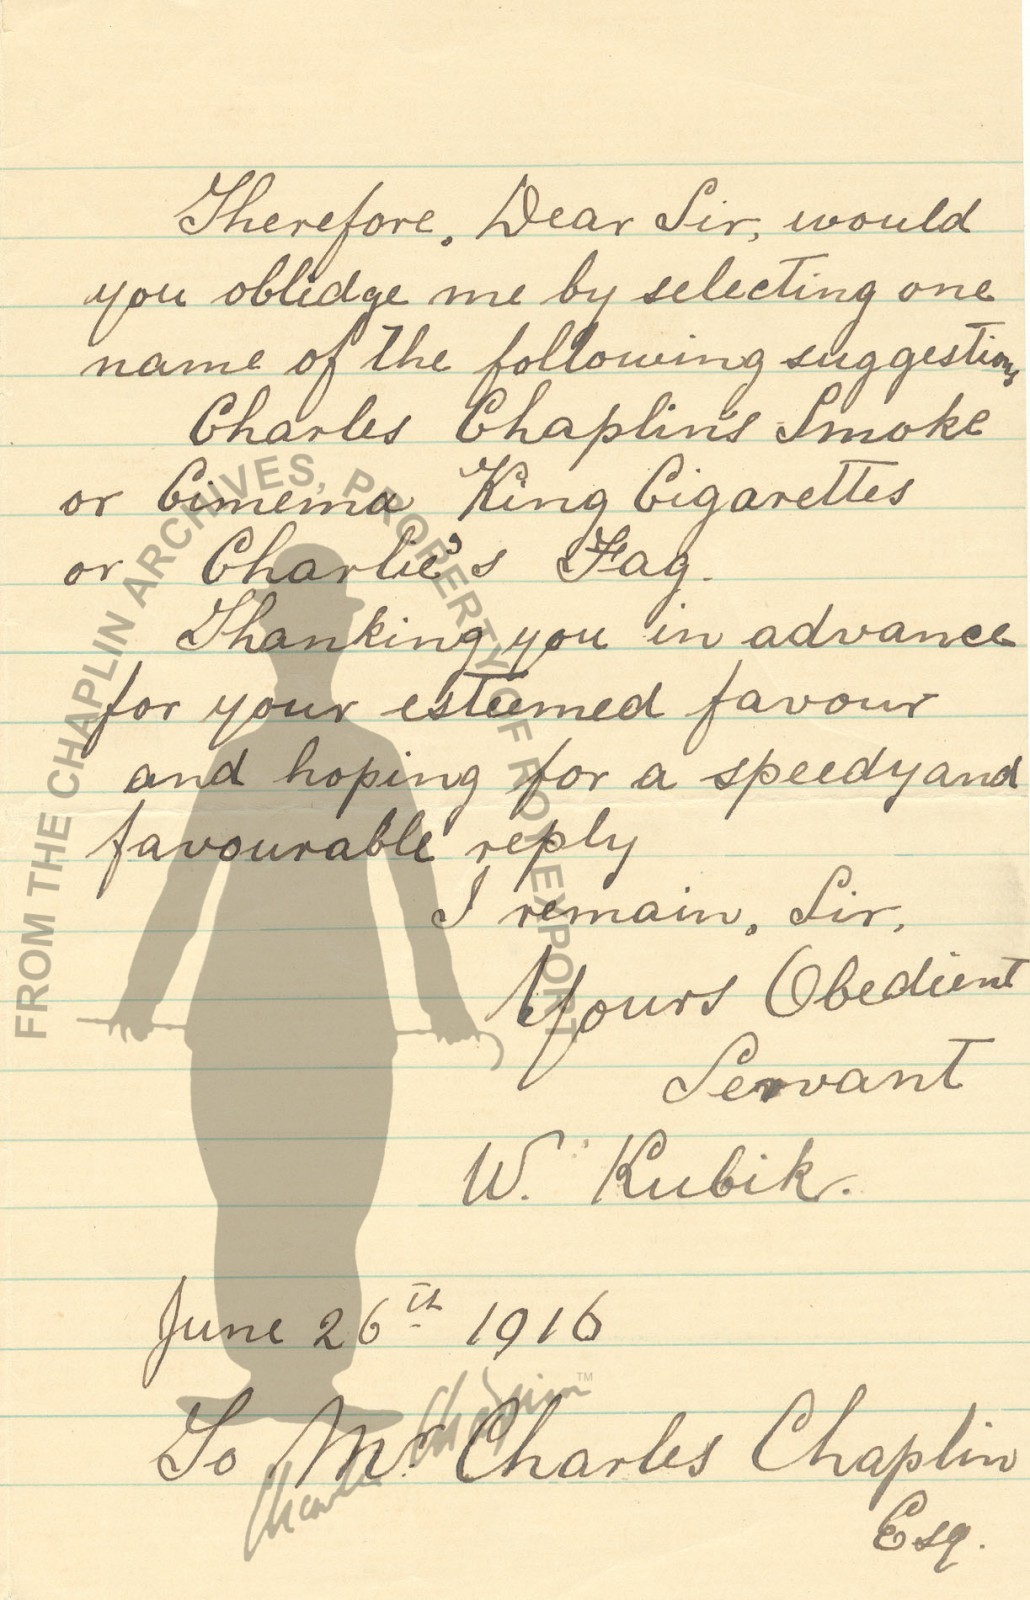 Therefore, Dear Sir, would
you obledge me by selecting one
name of the following suggestions
Charles Chaplin's Smoke
or Cimema King Cigarettes
or Charlie's Fag.
Thanking you in advance
for your esteemed favour
and hoping for a speedy and
favourable reply
I remain, Sir,
Yours Obedient
Servant
W. Kubik.
June 26th 1916
To Mr Charles Chaplin
Esq.
FROM THE CHAPLIN ARCHIVES, PROPERTY OF ROY EXPORT
Charlie Chaplin™